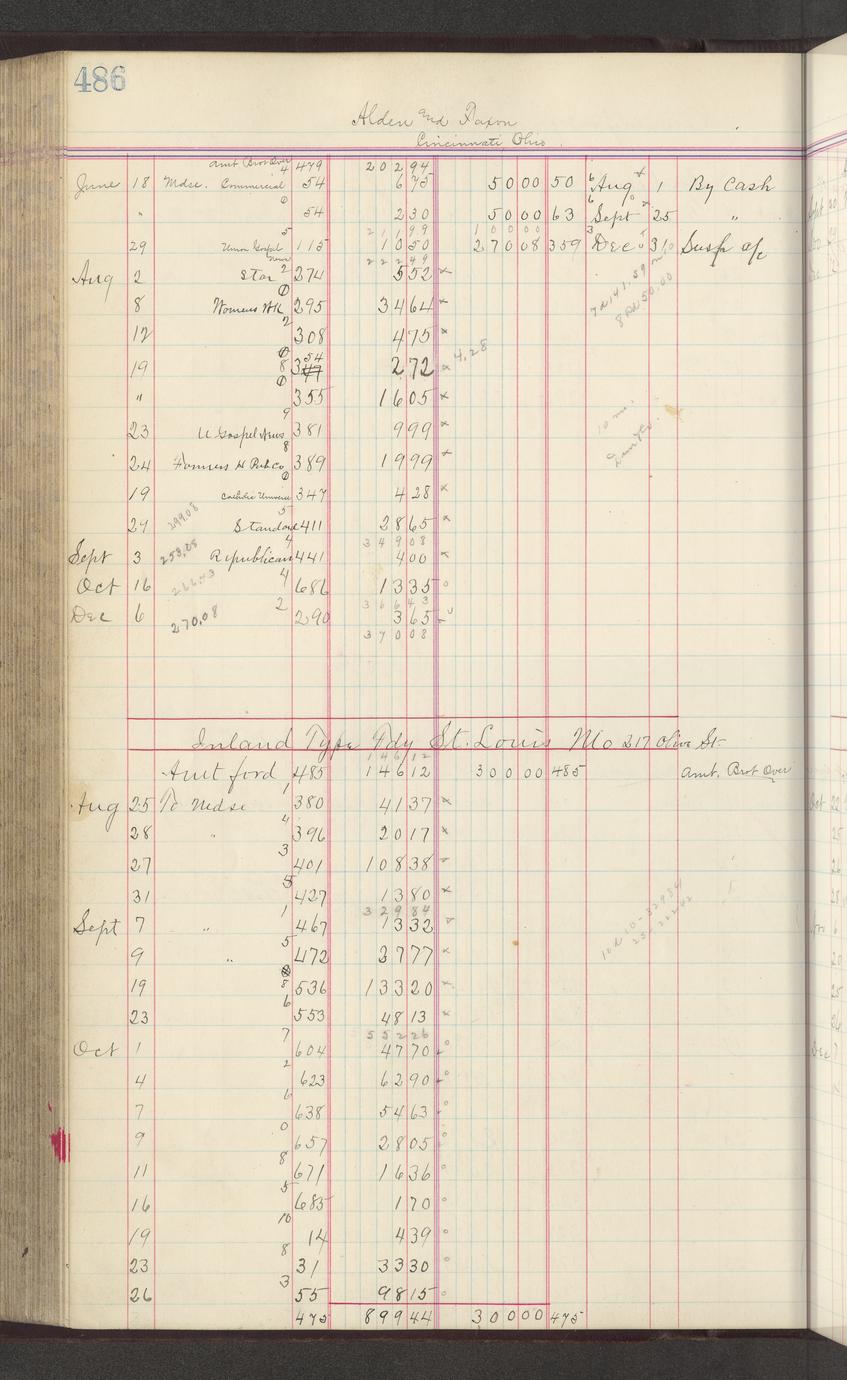 486
Alden and Faxon
Cincinnati Ohio.
Amt Brot Over 479 202 94
June 18 Mdse. Commercial 4 54 6 75 50 00 50 6 Aug 1 By Cash
" 0 54 2 30 50 00 63 6 Sept 25 "
211 99 100 00
29 Union Gospel News 5 115 10 50 270 08 359 3 Dec 31 Susp a/c
222 49
Aug 2 Star 2 274 5 52 x
8 Womens WK 0 295 34 64 x
12 2 308 4 75 x
19 8 354 2 72 x 4.28
" 0 355 16 05 x
23 U Gospel News 9 381 9 99 x
24 Farmers H Pub Co 8 389 19 99 x
19 Catholic Universe 0 347 4 28 x
27 299.08 Standard 5 411 28 65 x
349 08
Sept 3 253.08 Republican 4 441 4 00 x
Oct 16 266.43 4 686 13 35 o
366 43
Dec 6 270.08 2 290 3 65
370 08
7N 141.59
8 50.00
10 mo.
Inland Type Fdy St. Louis Mo 217 Olive St.
146 12
Amt ford 485 146 12 300 00 485 Amt. Brot Over
Aug 25 To Mdse 1 380 41 37 x
28 " 4 396 20 17 x
27 3 401 108 38
31 5 427 13 80 x
329 84
Sept 7 " 1 467 13 32
9 " 5 472 27 77 x
19 8 536 133 20 x
23 6 553 48 13 x
552 26
Oct 1 7 604 47 70 o
4 2 623 62 90 o
7 6 638 54 63 o
9 0 657 28 05 o
11 8 671 16 36 o
16 5 685 1 70 o
19 10 14 4 39 o
23 8 31 33 30 o
26 3 55 98 15 o
475 899 44 300 00 475
10N 10-329.84
25-222.42